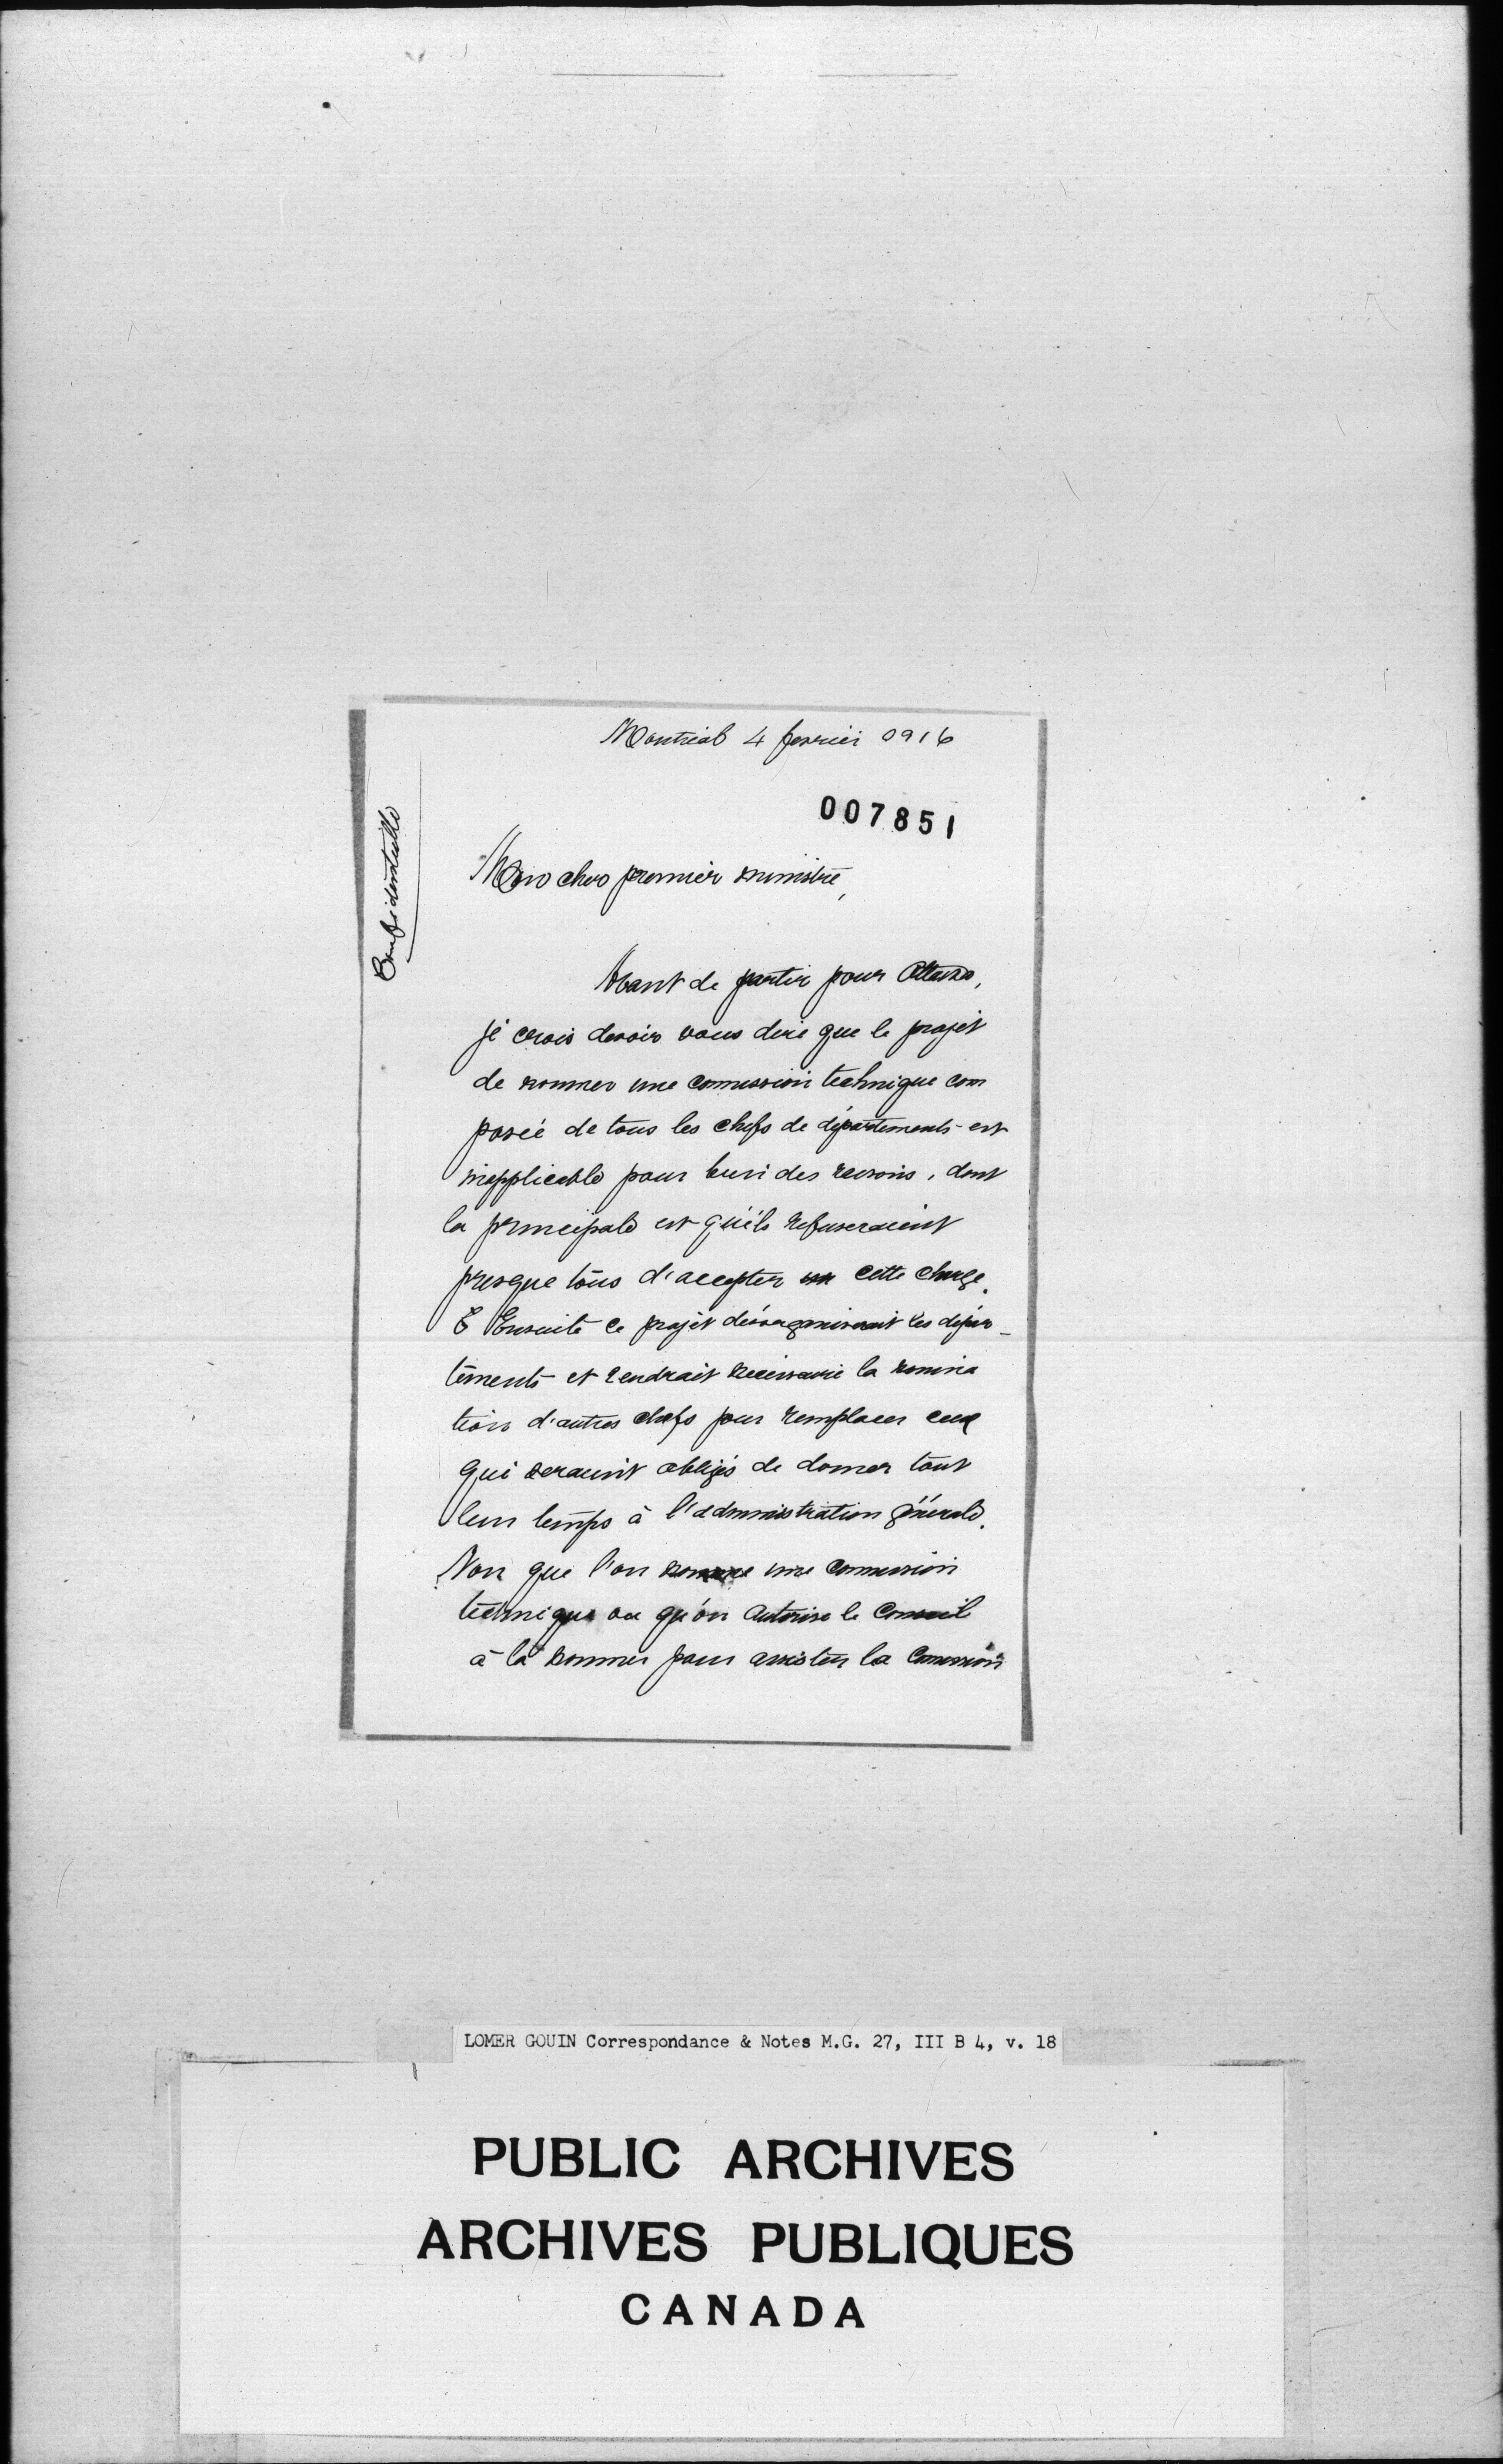 Montréal 4 fevrier 0916
007851
Confidentielle
Mon cher premier ministre,
Avant de partir pour Ottawa,
je crois devoir vous dire que le projet
de nommer une commission technique com
posée de tous les chefs de départements est
inapplicable pour bien des raisons, dont
la principale est qu'ils refuseraient
presque tous d'accepter cette charge.
E Ensuite ce projet désorganiserait les dépar-
tements et rendrait nécessaire la nomina
tion d'autres chefs pour remplacer ceux
qui seraient obligés de donner tout
leur temps à l'administration générale.
Non que l'on nomme une commission
technique ou qu'on autorise le Conseil
à la nommer pour assister la Commission
LOMER GOUIN Correspondance & Notes M.G. 27, III B 4, v. 18
PUBLIC ARCHIVES
ARCHIVES PUBLIQUES
CANADA